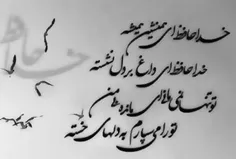 خداحافظ ای همنشین همیشه
خداحافظ ای داغ بر دل نشسته
تو تنها نمی مانی ای مانده بی من
تو را می سپارم به دلهای خسته
خداحافظ